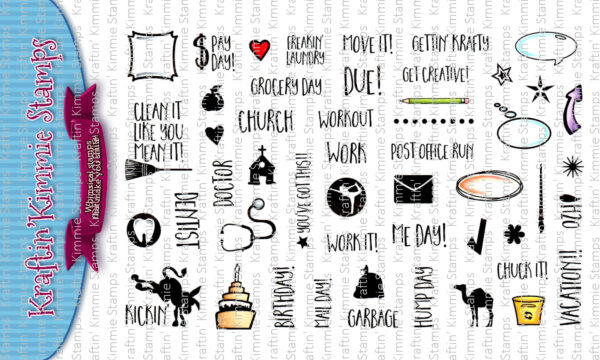 Kraftin' Kimmie Stamps
Whimsical stamps
that make you smile
$ PAY
DAY!
FREAKIN'
LAUNDRY
MOVE IT!
GETTIN' KRAFTY
GROCERY DAY
DUE!
GET CREATIVE!
CLEAN IT
LIKE YOU
MEAN IT!
CHURCH
WORKOUT
DOCTOR
YOU'VE GOT THIS!!
WORK
POST OFFICE RUN
DENTIST
WORK IT!
ME DAY!
OCH!
KICKIN'
BIRTHDAY!
MAIL DAY!
GARBAGE
HUMP DAY
CHUCK IT!
VACATION!!